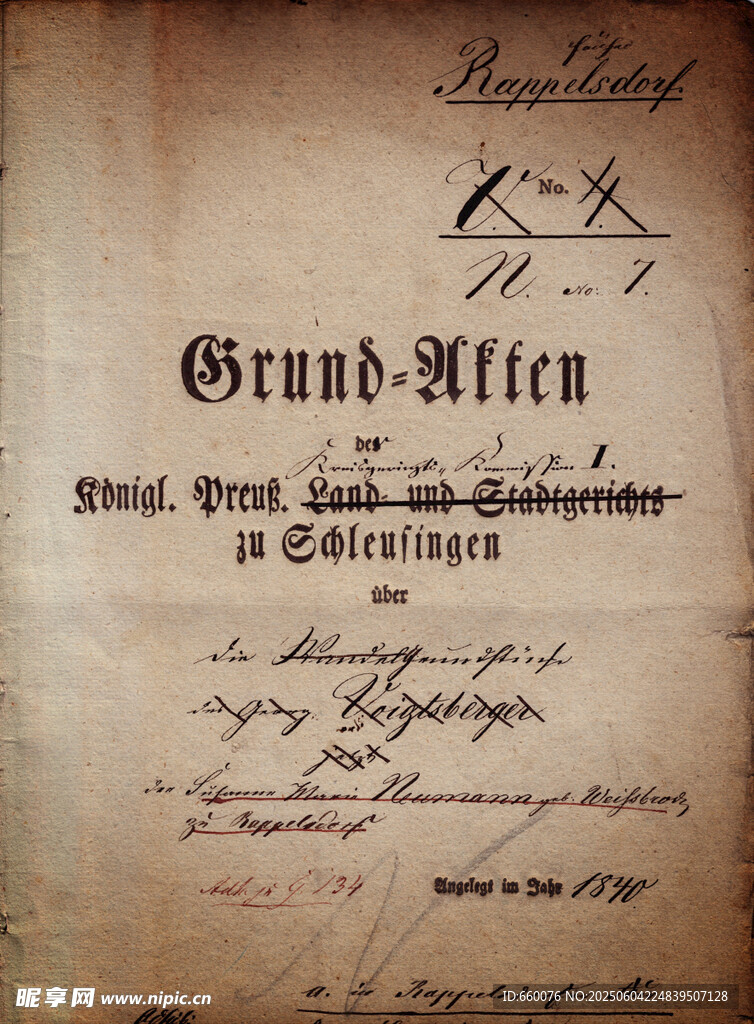 Rappelsdorf.
V. No. 4.
N. No: 7.
Grund-Akten
des
Kreisgerichts-Kommission I.
Königl. Preuß. Land- und Stadtgerichts
zu Schleusingen
über
die Wandelgrundstücke
des Georg Voigtsberger
und
jetzt
der Susanne Marie Neumann geb. Weißbrodt
zu Rappelsdorf
Adh. zu G 134
Angelegt im Jahr 1840.
a. in Rappelsdorf
昵享网 www.nipic.cn
ID:660076 NO:20250604224839507128